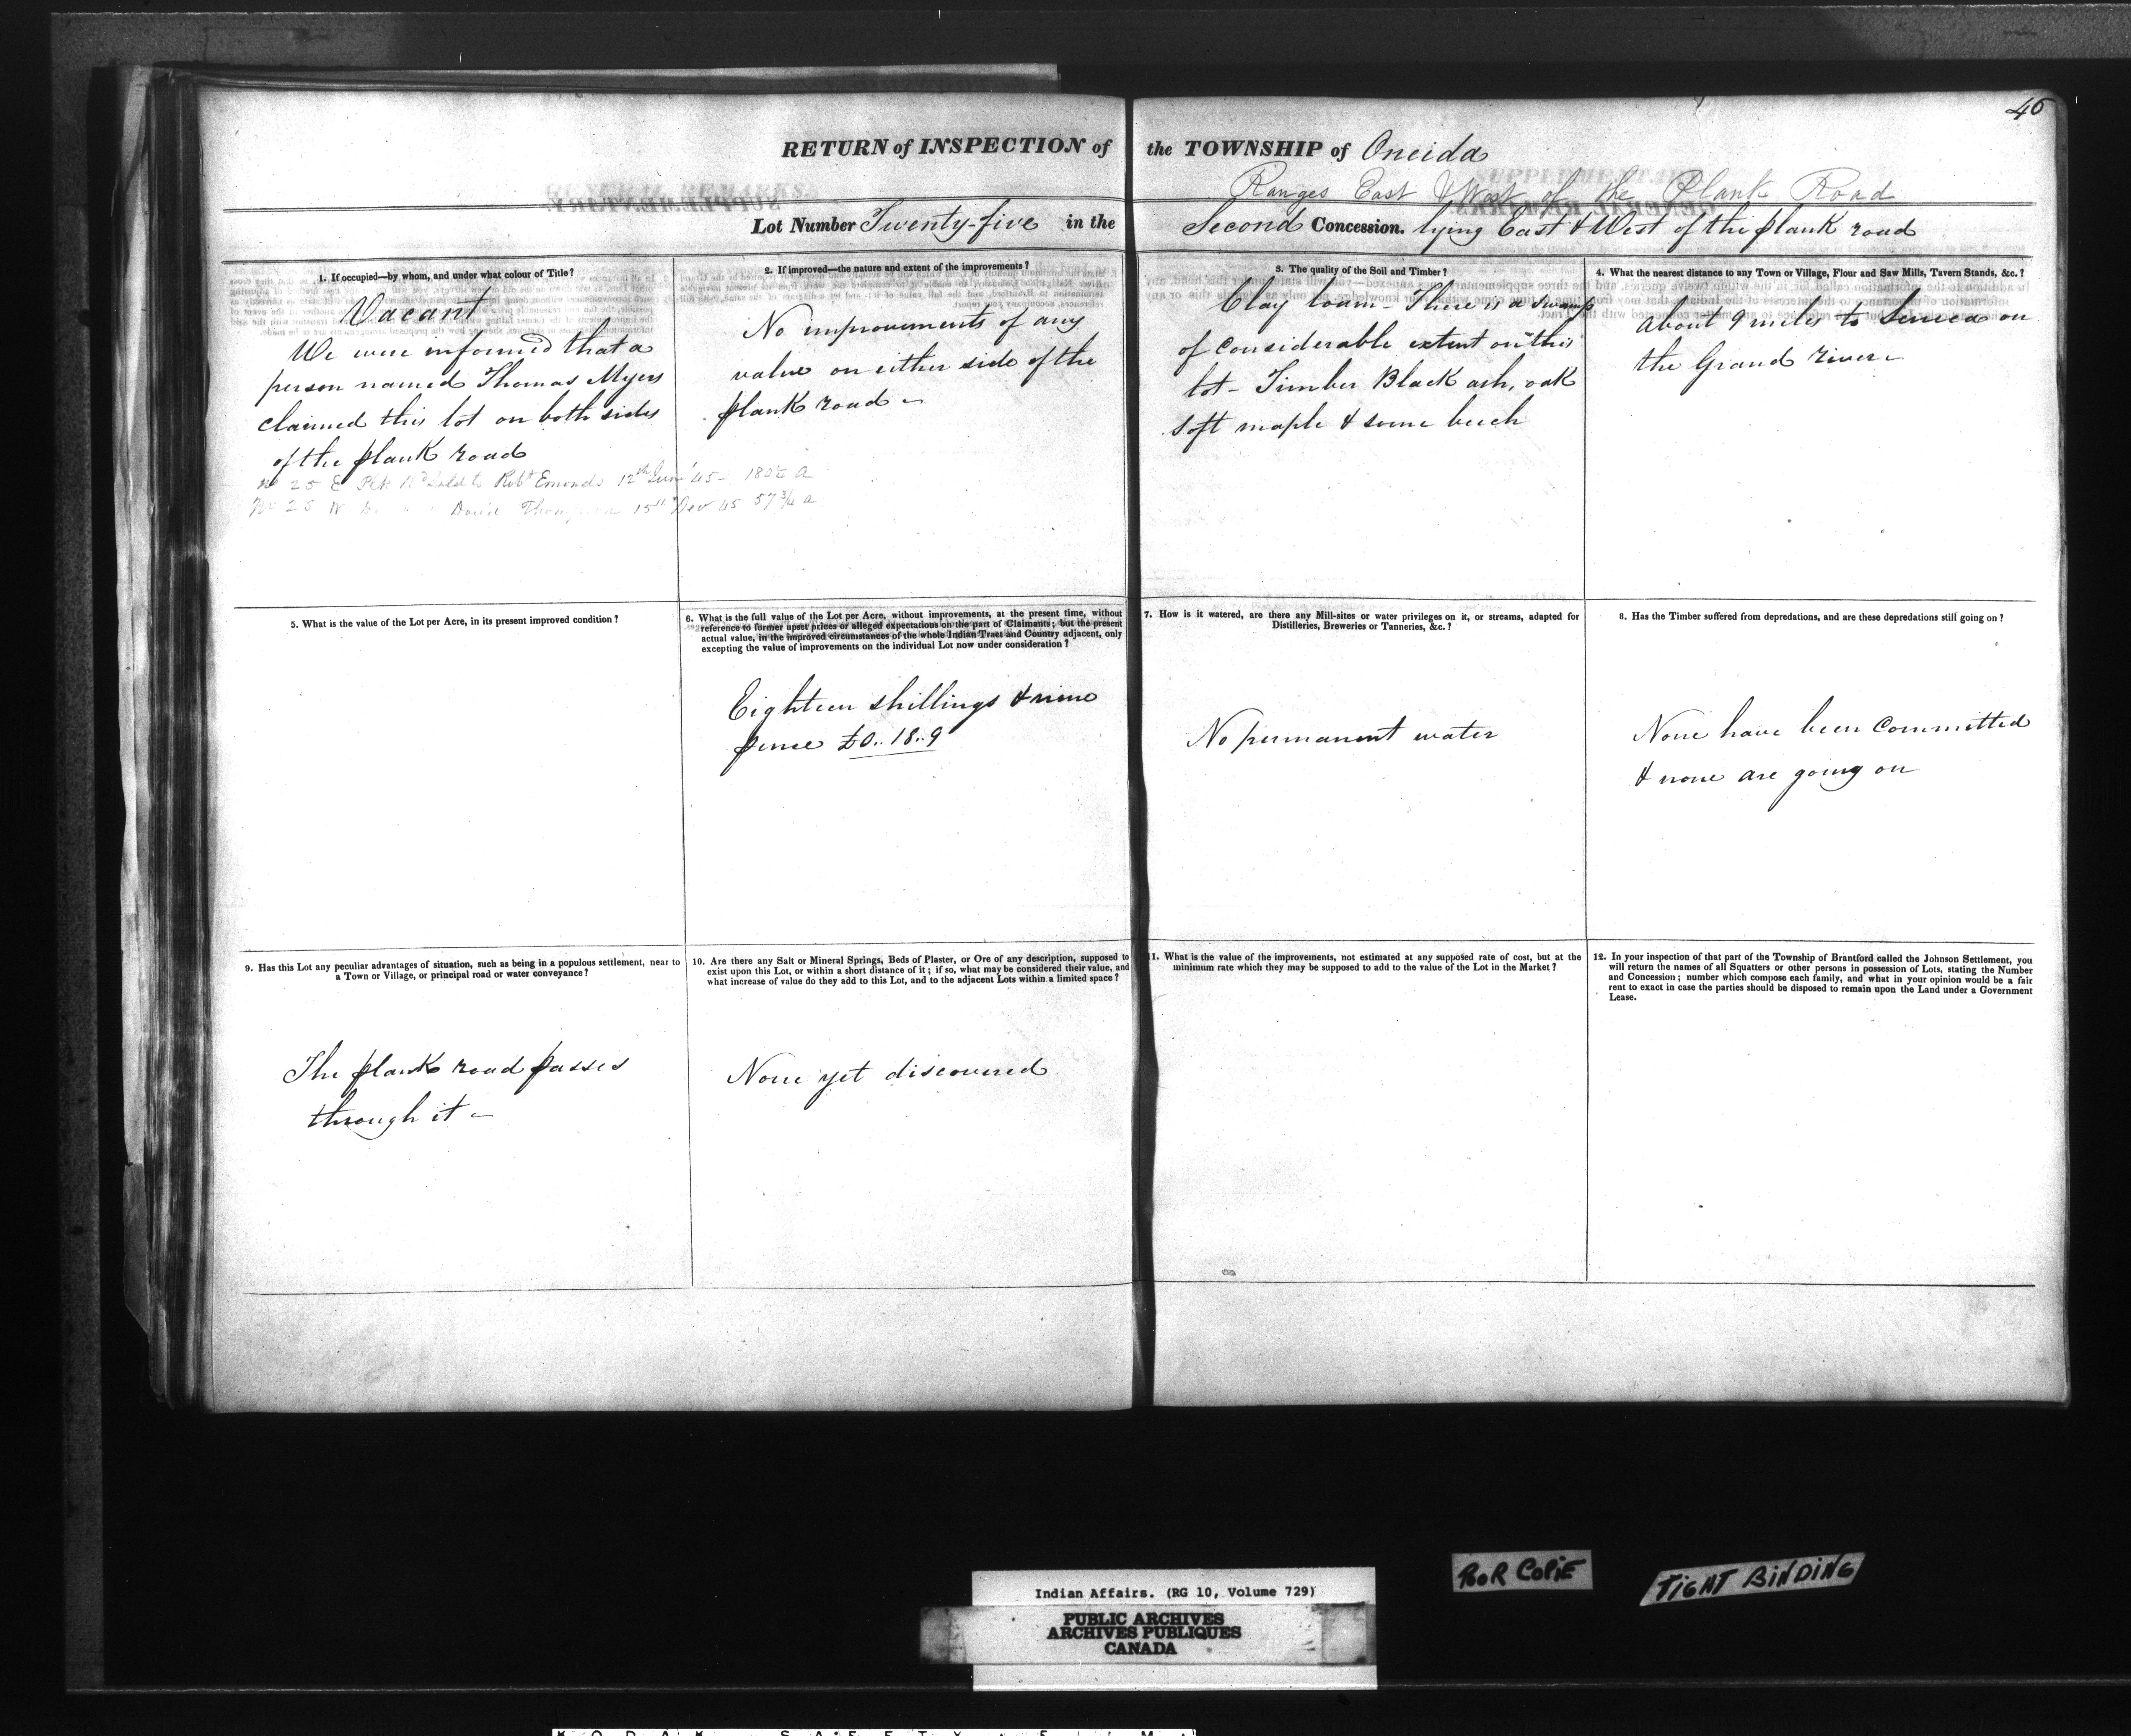 46
RETURN of INSPECTION of the TOWNSHIP of Oneida
Ranges East & West of the Plank Road
Lot Number Twenty-five in the Second Concession. lying East & West of the plank road
1. If occupied—by whom, and under what colour of Title?
Vacant
We were informed that a
person named Thomas Myers
claimed this lot on both sides
of the plank road
No 25 E Plk Rd Sold to Robt Emonds 12th June '45 - 180½ a
No 25 W Do " " David Thompson 15th Nov 45 57¾ a
2. If improved—the nature and extent of the improvements?
No improvements of any
value on either side of the
plank road -
3. The quality of the Soil and Timber?
Clay loam - There is a swamp
of considerable extent on this
lot - Timber Black ash, oak
soft maple & some beech
4. What the nearest distance to any Town or Village, Flour and Saw Mills, Tavern Stands, &c.?
About 9 miles to Seneca on
the Grand river -
5. What is the value of the Lot per Acre, in its present improved condition?
6. What is the full value of the Lot per Acre, without improvements, at the present time, without
reference to former upset prices or alleged expectations on the part of Claimants; but the present
actual value, in the improved circumstances of the whole Indian Tract and Country adjacent, only
excepting the value of improvements on the individual Lot now under consideration?
Eighteen shillings & nine
pence £0..18..9
7. How is it watered, are there any Mill-sites or water privileges on it, or streams, adapted for
Distilleries, Breweries or Tanneries, &c.?
No permanent water
8. Has the Timber suffered from depredations, and are these depredations still going on?
None have been committed
& none are going on
9. Has this Lot any peculiar advantages of situation, such as being in a populous settlement, near to
a Town or Village, or principal road or water conveyance?
The plank road passes
through it -
10. Are there any Salt or Mineral Springs, Beds of Plaster, or Ore of any description, supposed to
exist upon this Lot, or within a short distance of it; if so, what may be considered their value, and
what increase of value do they add to this Lot, and to the adjacent Lots within a limited space?
None yet discovered
11. What is the value of the improvements, not estimated at any supposed rate of cost, but at the
minimum rate which they may be supposed to add to the value of the Lot in the Market?
12. In your inspection of that part of the Township of Brantford called the Johnson Settlement, you
will return the names of all Squatters or other persons in possession of Lots, stating the Number
and Concession; number which compose each family, and what in your opinion would be a fair
rent to exact in case the parties should be disposed to remain upon the Land under a Government
Lease.
POOR COPIE
TIGHT BINDING
Indian Affairs. (RG 10, Volume 729)
PUBLIC ARCHIVES
ARCHIVES PUBLIQUES
CANADA